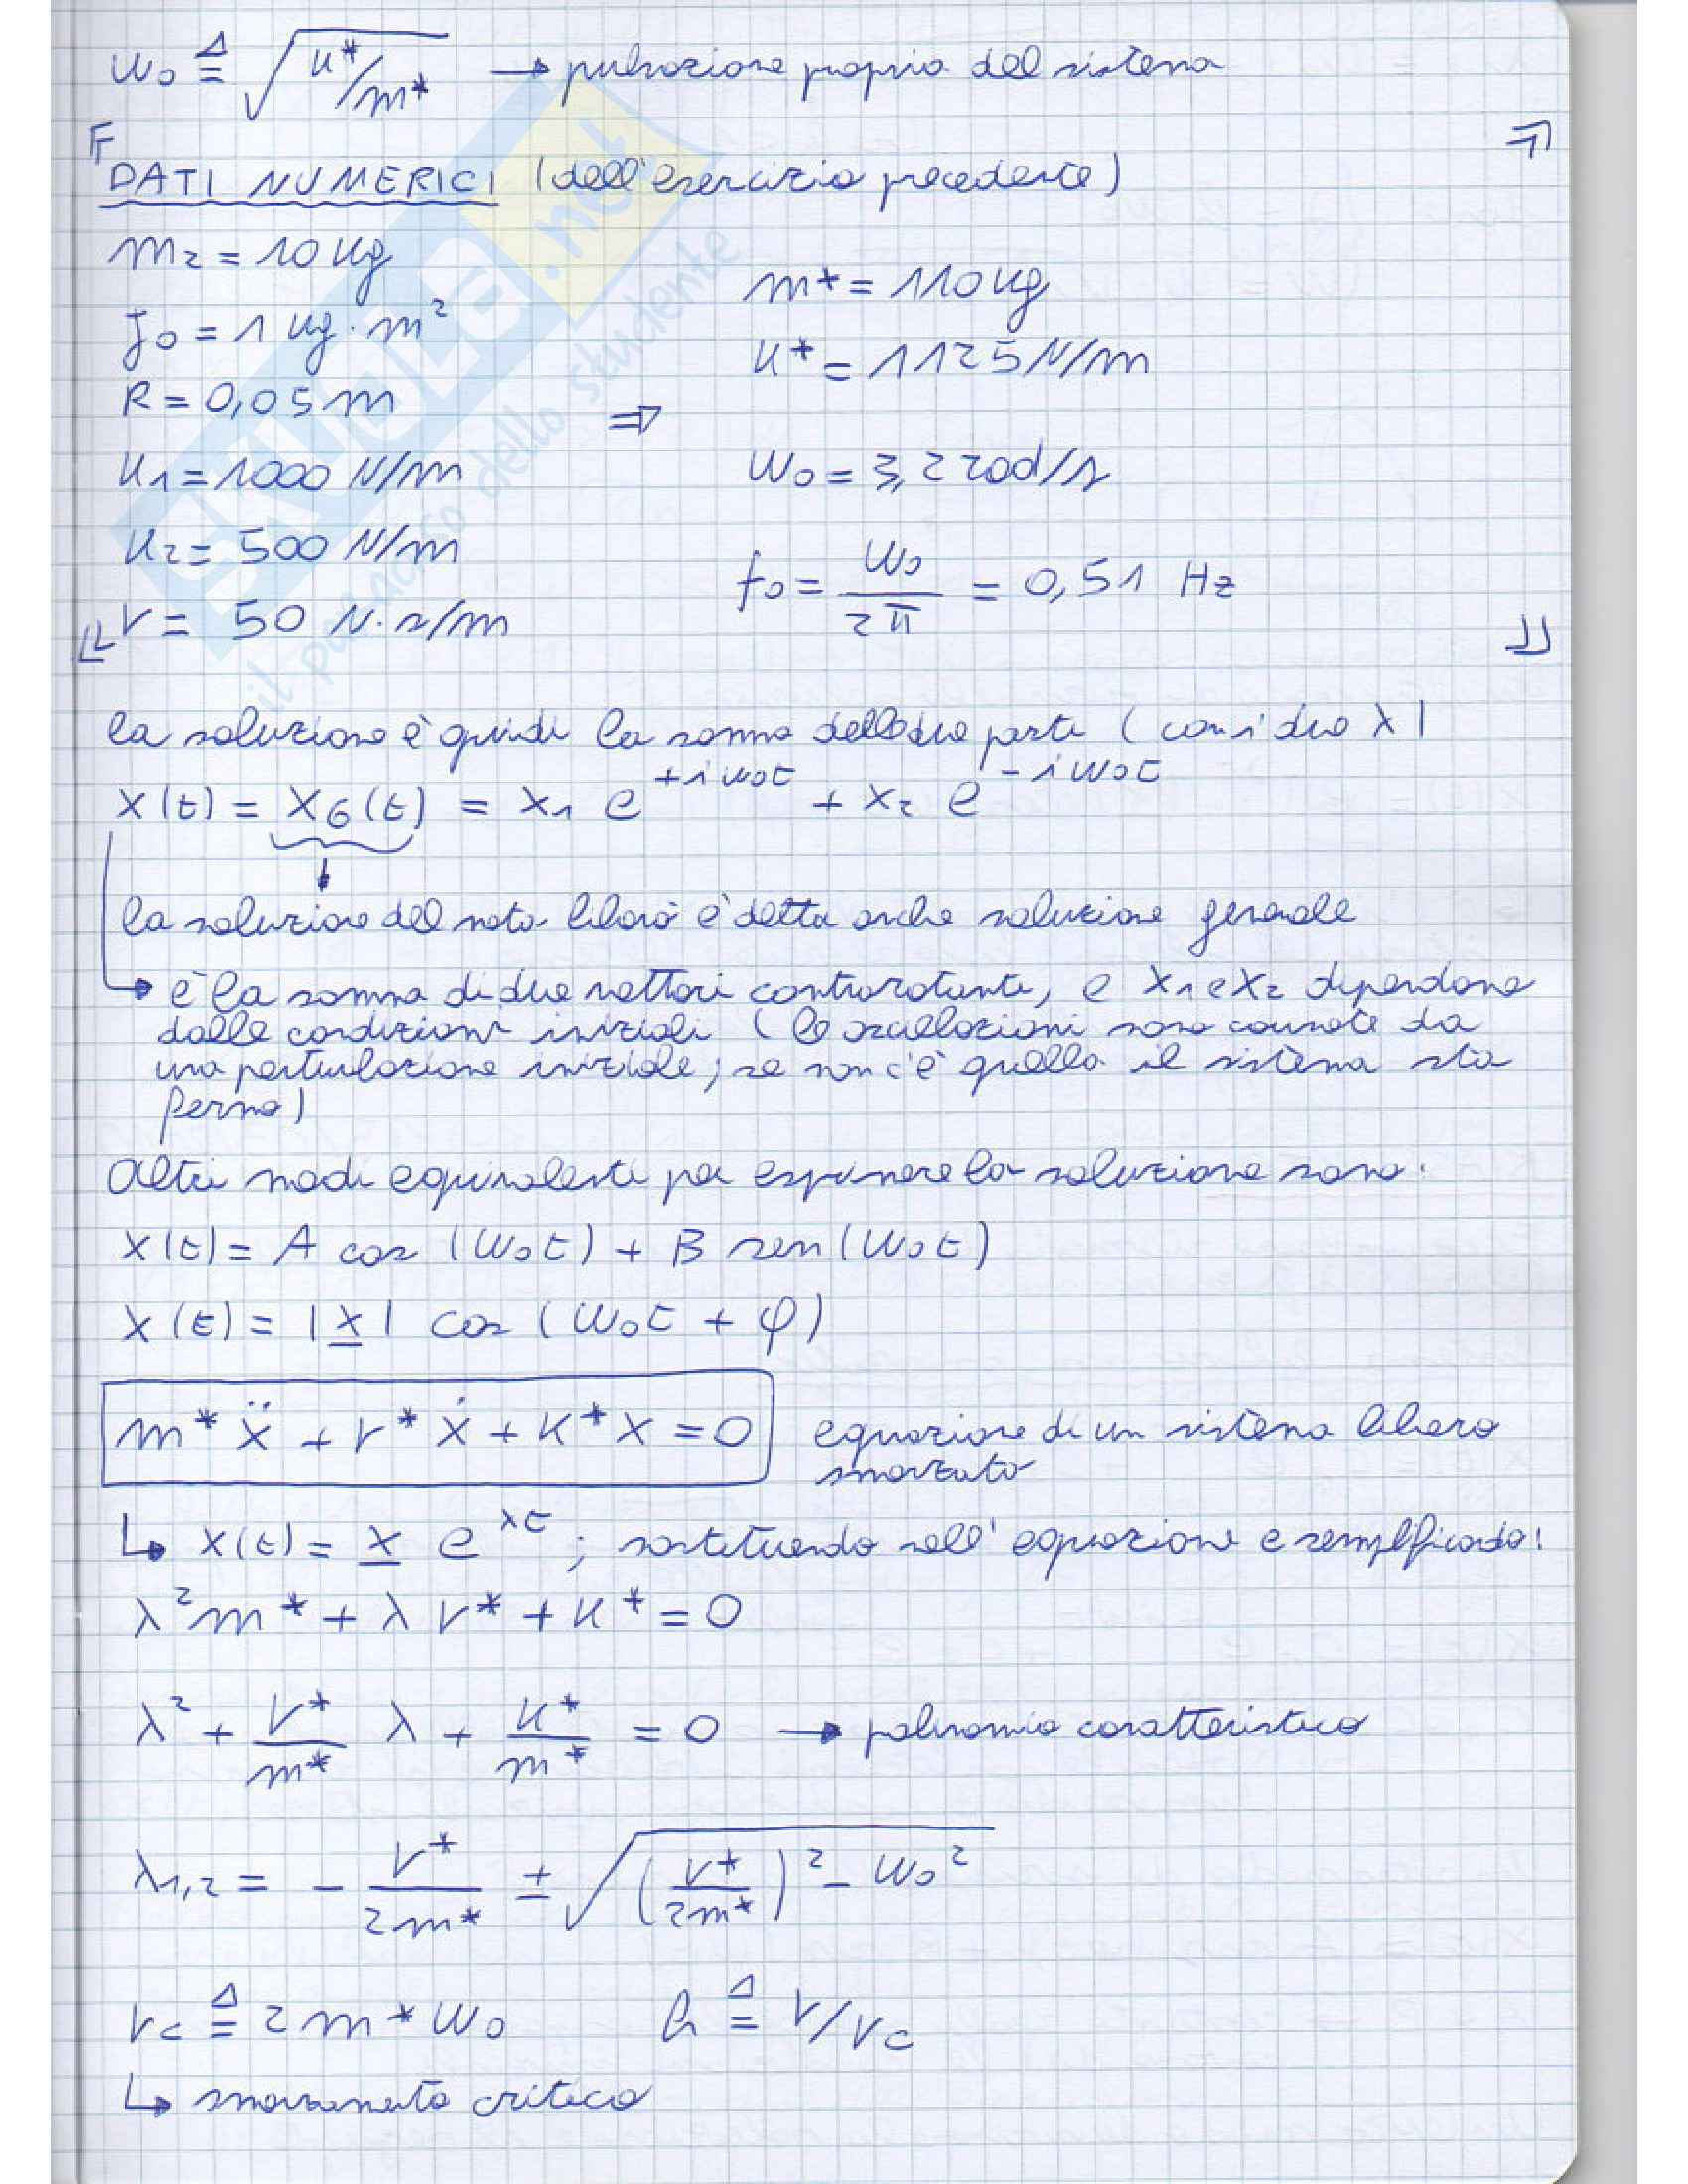 ω₀ ≜ √(k*/m*) → pulsazione propria del sistema
DATI NUMERICI (dell'esercizio precedente)
m₂ = 10 kg
J₀ = 1 kg · m²
R = 0,05 m
k₁ = 1000 N/m
k₂ = 500 N/m
r = 50 N·s/m
⇒
m* = 110 kg
k* = 1125 N/m
ω₀ = 3,2 rad/s
f₀ = ω₀/2π = 0,51 Hz
la soluzione è quindi la somma delle due parti (considero λ)
x(t) = x_G(t) = x₁ e^{+iω₀t} + x₂ e^{-iω₀t}
la soluzione del moto libero è detta anche soluzione generale
→ è la somma di due vettori controrotanti, e x₁ e x₂ dipendono
dalle condizioni iniziali (le oscillazioni sono causate da
una perturbazione iniziale; se non c'è quella il sistema sta
fermo)
Altri modi equivalenti per esprimere la soluzione sono:
x(t) = A cos(ω₀t) + B sen(ω₀t)
x(t) = |x| cos(ω₀t + φ)
m* ẍ + r* ẋ + k* x = 0 equazione di un sistema libero
smorzato
↳ x(t) = x e^{λt} ; sostituendo nell'equazione e semplificando:
λ² m* + λ r* + k* = 0
λ² + r*/m* λ + k*/m* = 0 → polinomio caratteristico
λ₁,₂ = - r*/2m* ± √((r*/2m*)² - ω₀²)
r_c ≜ 2 m* ω₀ h ≜ r/r_c
↳ smorzamento critico
SKUOLA.net
il paradiso dello studente